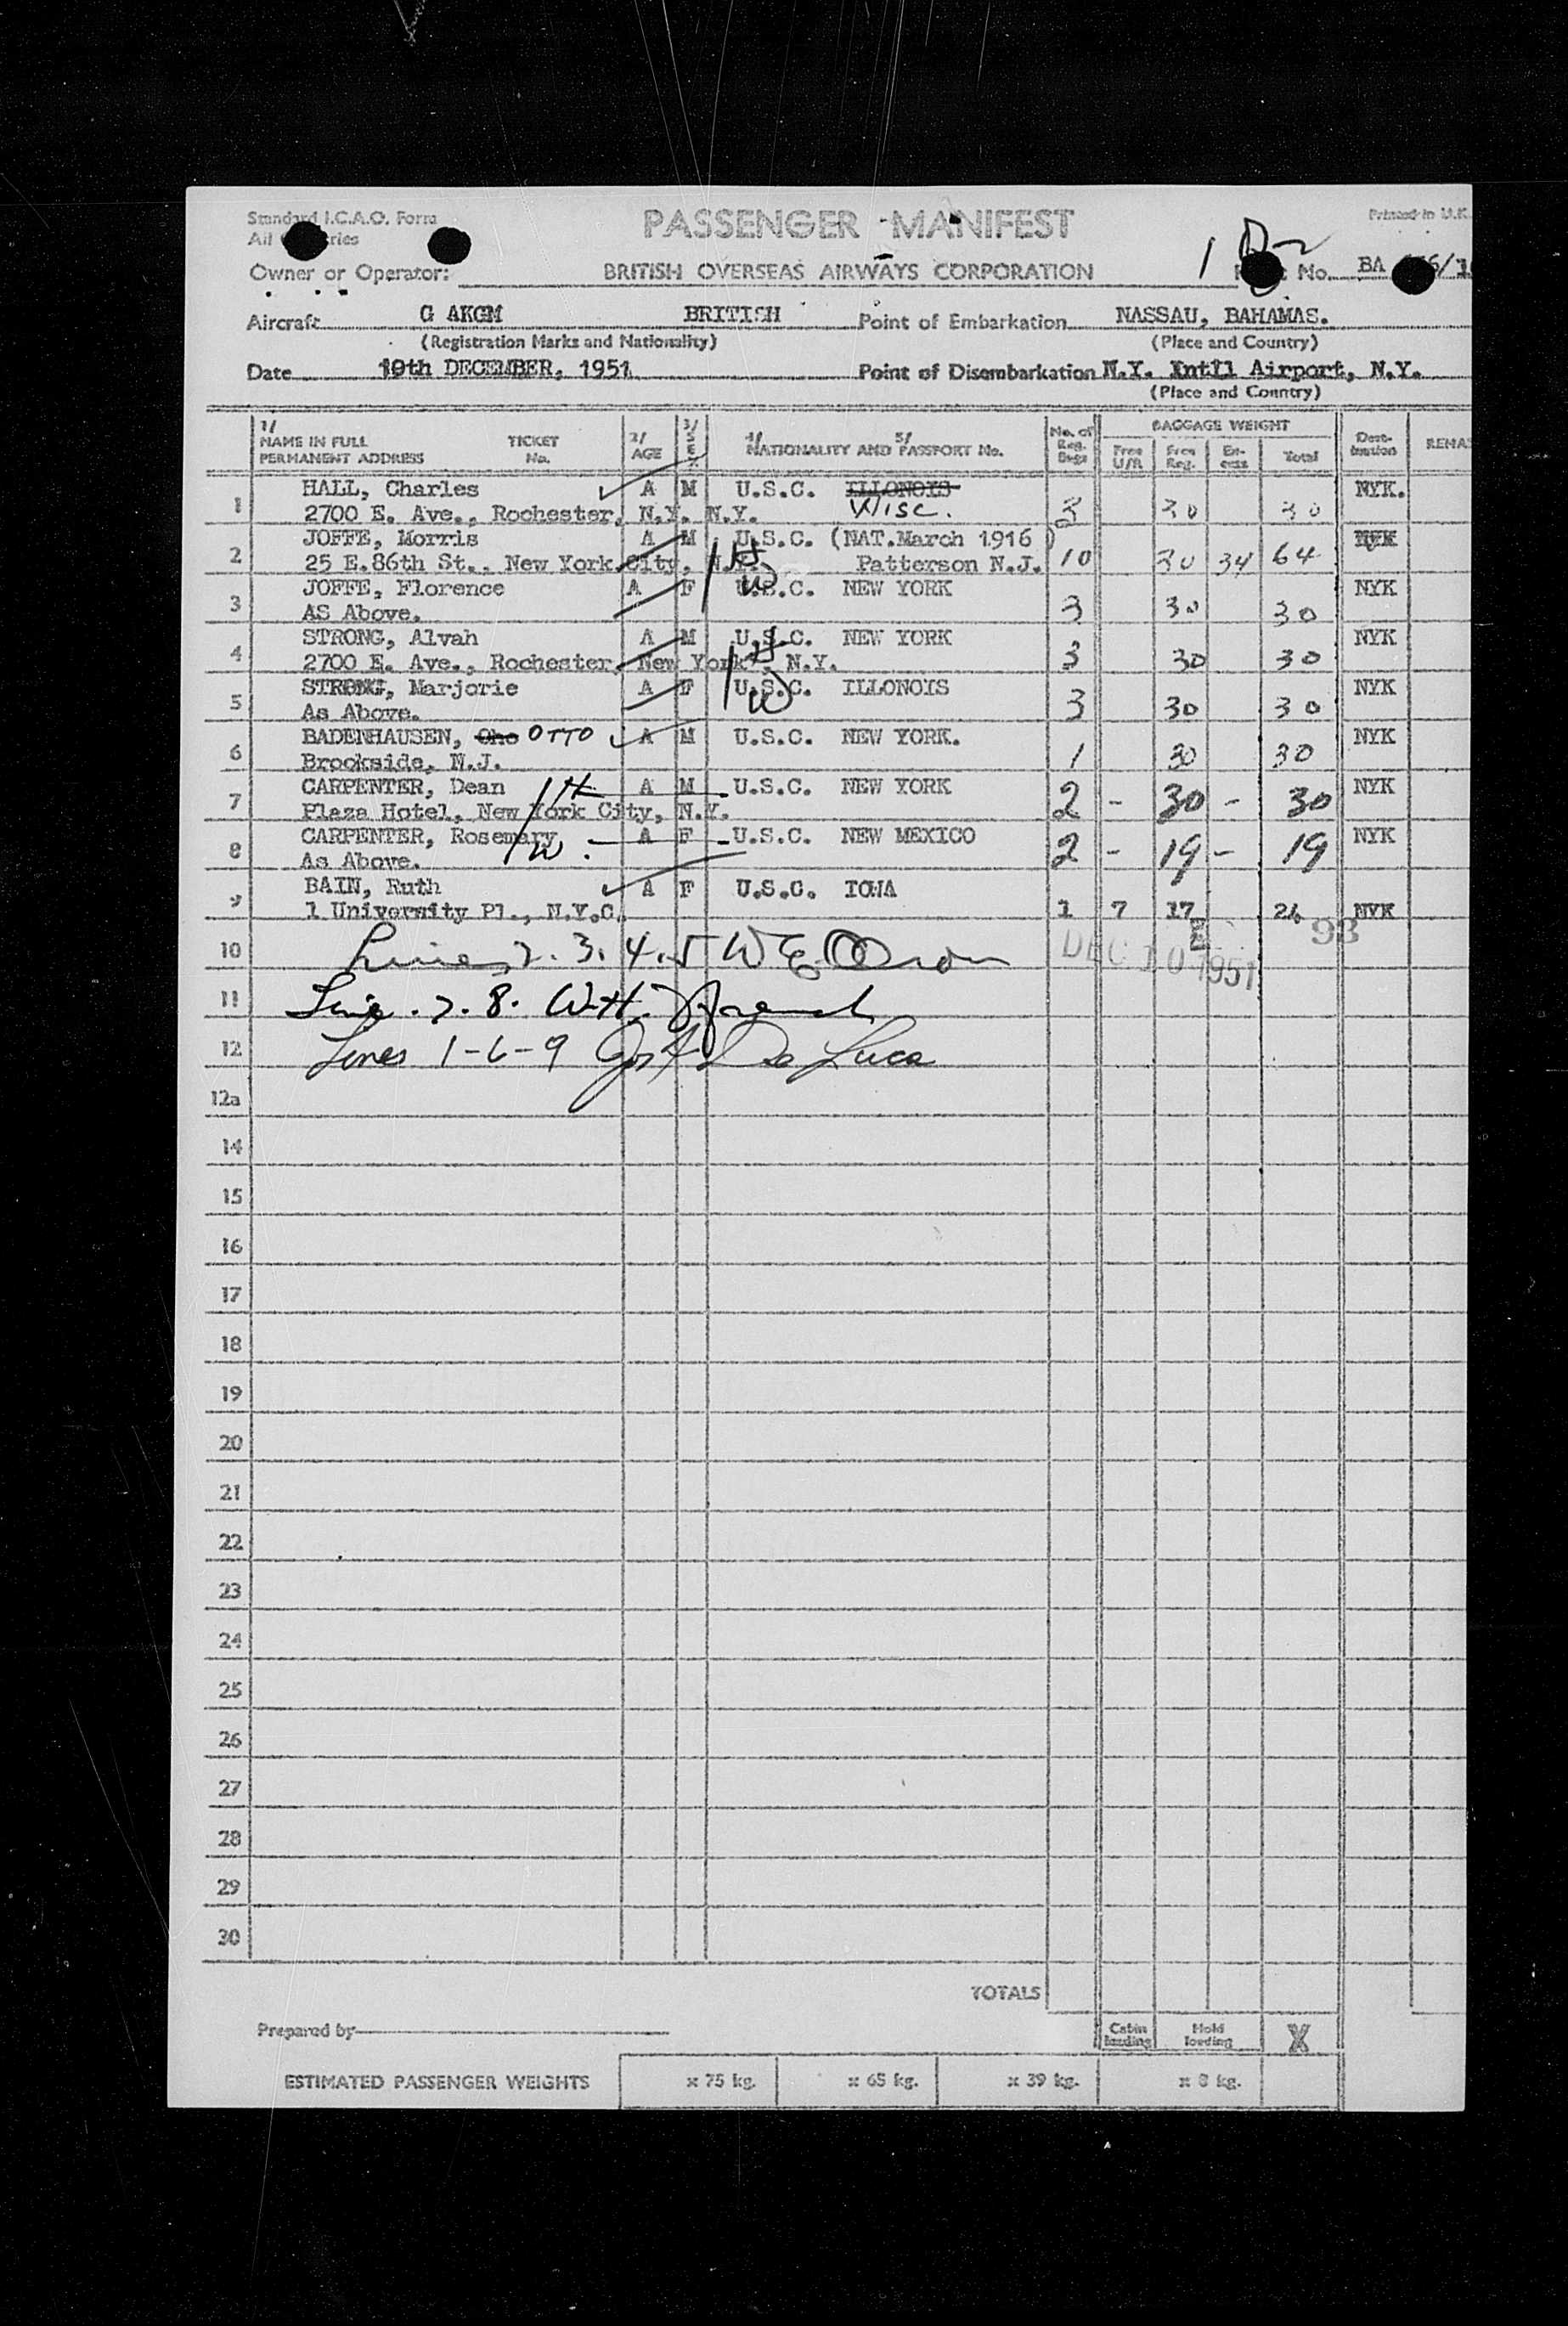 Standard I.C.A.O. Form
PASSENGER MANIFEST
Printed in U.K.
All
Owner or Operator: BRITISH OVERSEAS AIRWAYS CORPORATION
No. BA
Aircraft G AKGM BRITISH Point of Embarkation NASSAU, BAHAMAS.
(Registration Marks and Nationality) (Place and Country)
Date 10th DECEMBER, 1951 Point of Disembarkation N.Y. Int'l Airport, N.Y.
(Place and Country)
1/ NAME IN FULL PERMANENT ADDRESS TICKET No. 2/ AGE 3/ SEX 4/ 5/ NATIONALITY AND PASSPORT No. No. of Reg. Bags BAGGAGE WEIGHT Free U/R Free Reg. Ex-cess Total Dest-ination REMA
1 HALL, Charles A M U.S.C. ILLONOIS NYK.
2700 E. Ave., Rochester, N.Y. N.Y. Wisc. 3 30 30
2 JOFFE, Morris A M U.S.C. (NAT.March 1916 ) NYK
25 E.86th St., New York City, N.Y. Patterson N.J. 10 30 34 64
3 JOFFE, Florence A F U.S.C. NEW YORK NYK
AS Above. 3 30 30
4 STRONG, Alvah A M U.S.C. NEW YORK NYK
2700 E. Ave., Rochester, New York, N.Y. 3 30 30
5 STRONG, Marjorie A F U.S.C. ILLONOIS NYK
As Above. 3 30 30
6 BADENHAUSEN, OTTO A M U.S.C. NEW YORK. NYK
Brookside, N.J. 1 30 30
7 CARPENTER, Dean 1 H A M U.S.C. NEW YORK NYK
Plaza Hotel, New York City, N.Y. 2 - 30 - 30
8 CARPENTER, Rosemary A F U.S.C. NEW MEXICO NYK
As Above. 1 W 2 - 19 - 19
9 BAIN, Ruth A F U.S.C. IOWA
1 University Pl., N.Y.C. 1 7 17 24 NYK
10 Lines 2. 3. 4. 5 DEC 10 1951 93
11 Line . 7. 8.
12 Lines 1-6-9 De Luca
12a
14
15
16
17
18
19
20
21
22
23
24
25
26
27
28
29
30
TOTALS
Prepared by Cabin loading Hold loading X
ESTIMATED PASSENGER WEIGHTS x 75 kg. x 65 kg. x 39 kg. x 8 kg.